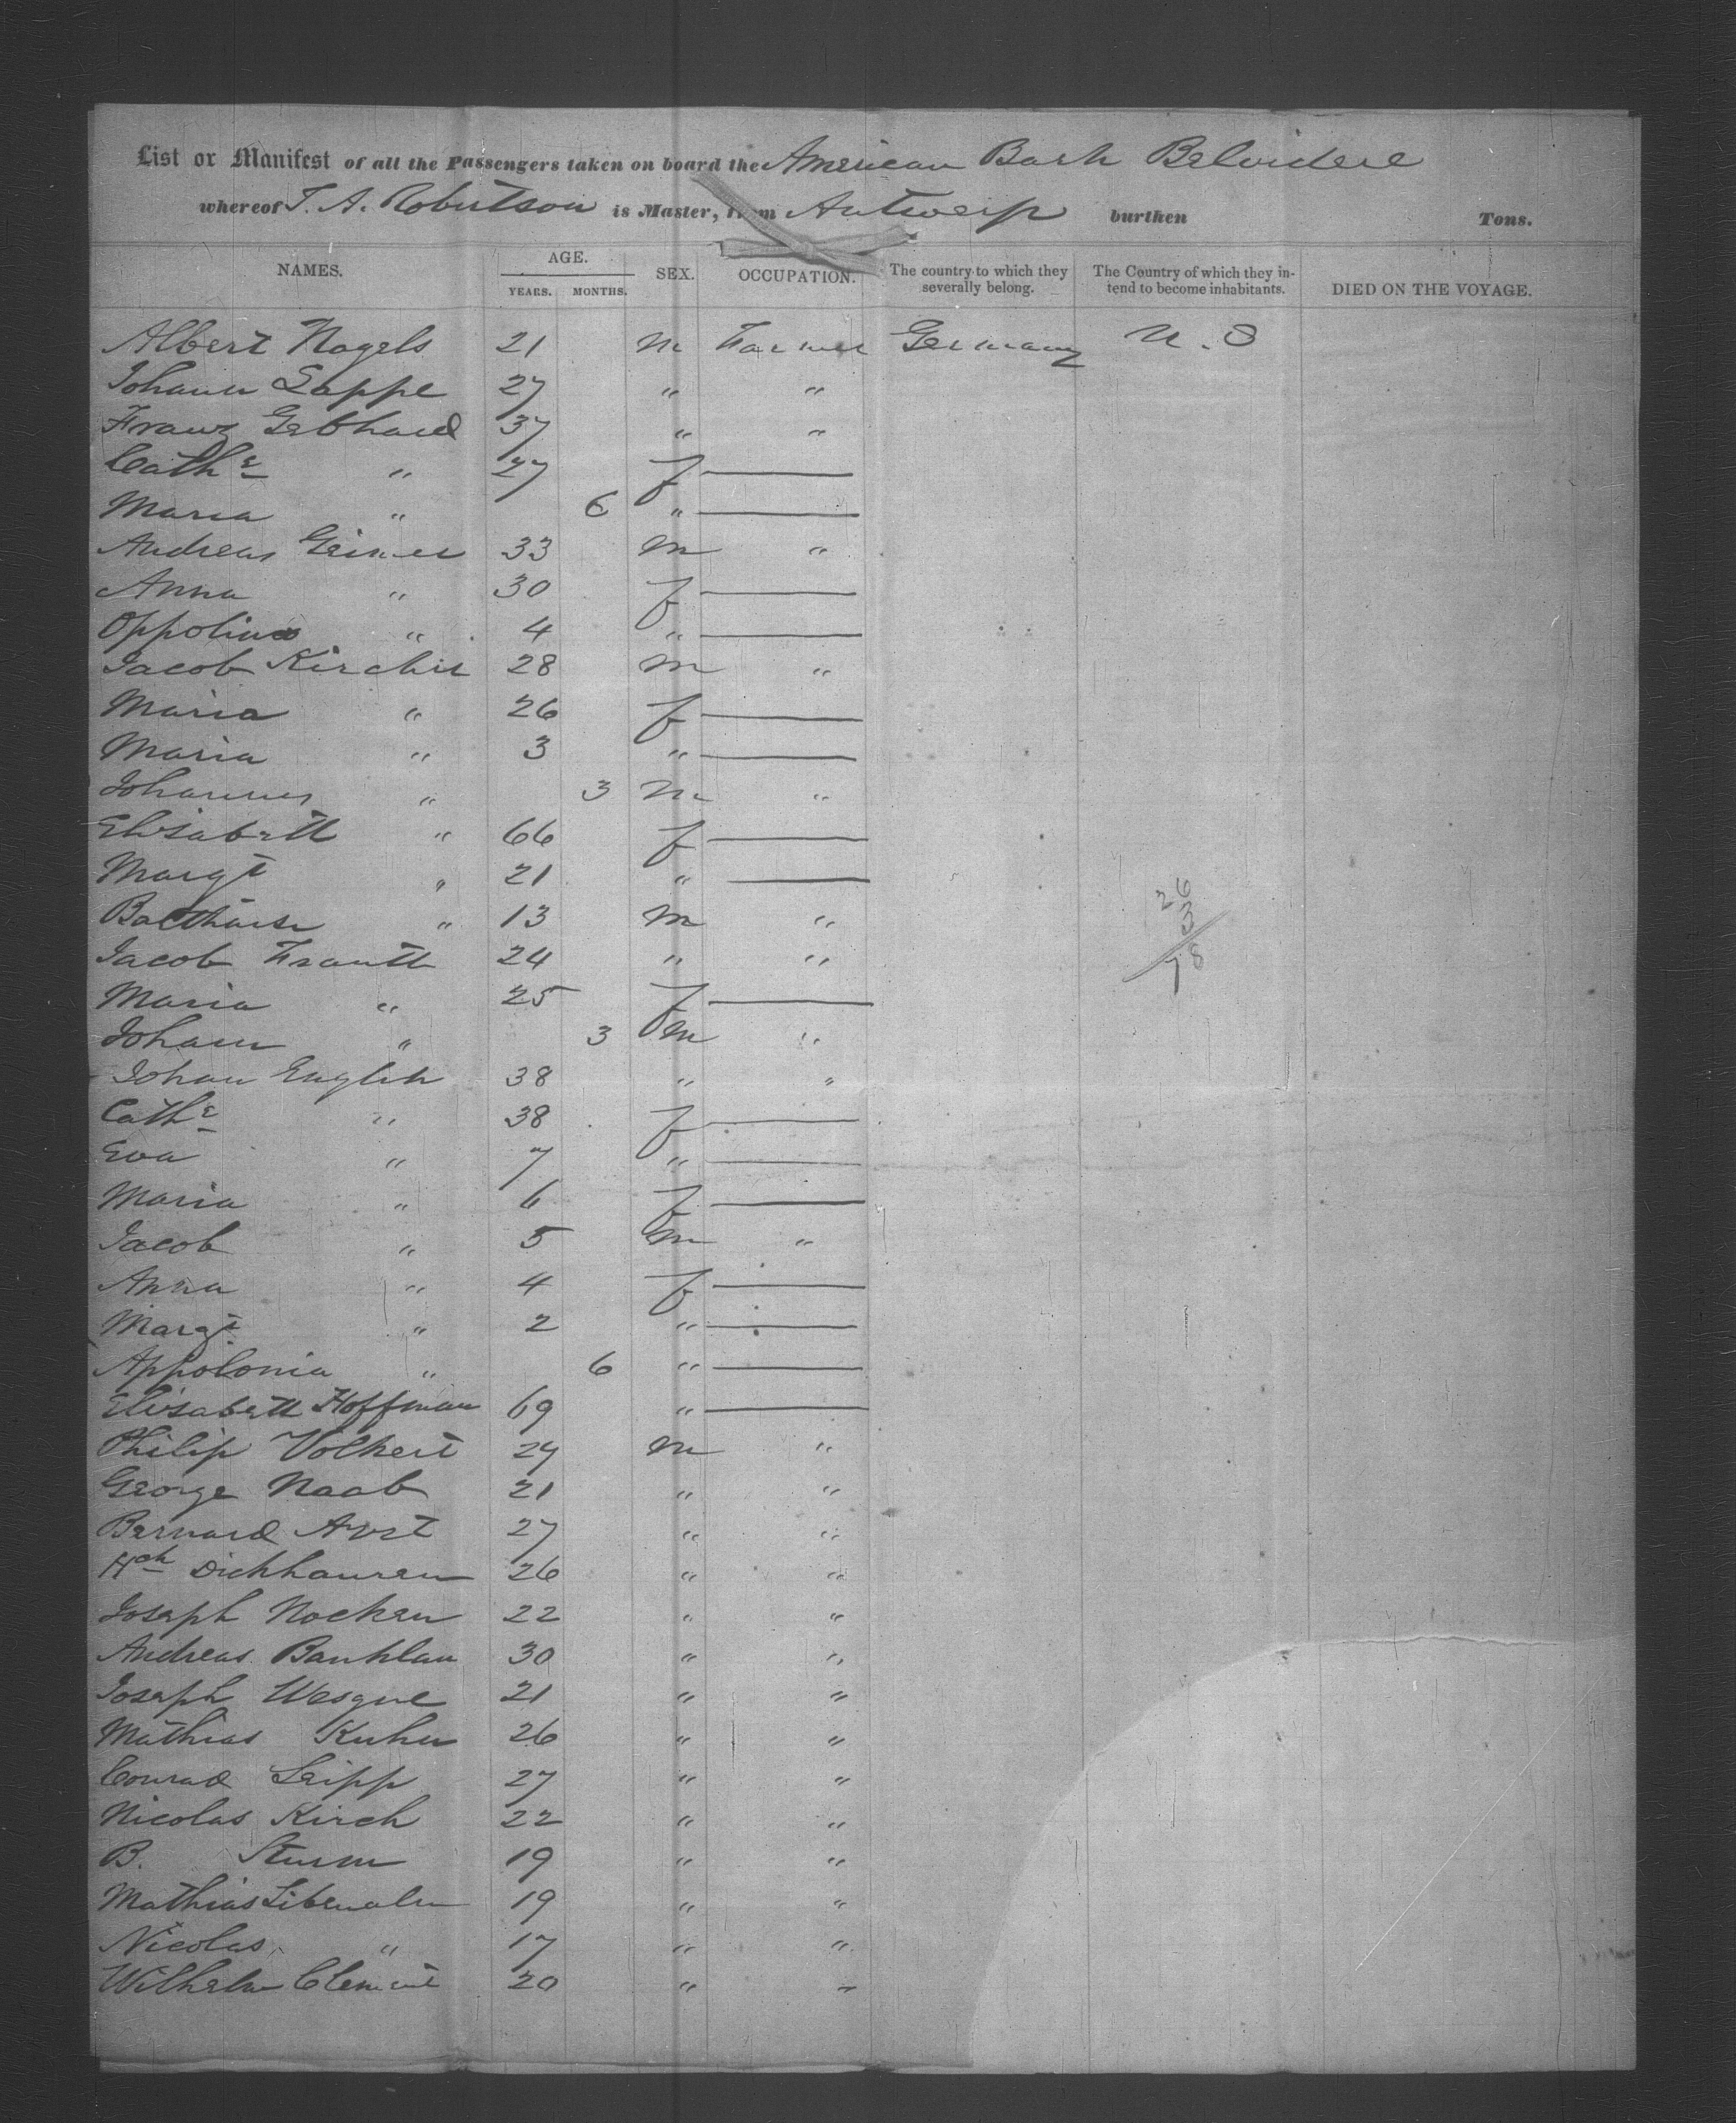 List or Manifest of all the Passengers taken on board the American Bark Belvidere
whereof T. A. Robertson is Master, from Antwerp burthen Tons.
NAMES. AGE. YEARS. MONTHS. SEX. OCCUPATION. The country to which they severally belong. The Country of which they intend to become inhabitants. DIED ON THE VOYAGE.
Albert Nagels 21 m Farmer Germany U.S
Johann Lappe 27 " "
Franz Gebhard 37 " "
Cathe " 27 f —
Maria " 6 " —
Andreas Greiner 33 m "
Anna " 30 f —
Oppolina " 4 " —
Jacob Kircher 28 m "
Maria " 26 f —
Maria " 3 " —
Johannes " 3 m "
Elisabeth " 66 f —
Margt " 21 " —
Balthaser " 13 m "
Jacob Frantt 24 " "
Maria " 25 f —
26
3
78
Johann " 3 m "
Johan English 38 " "
Cathe " 38 f —
Eva " 7 " —
Maria " 6 f —
Jacob " 5 m "
Anna " 4 f —
Margt " 2 " —
Appolonia " 6 " —
Elisabeth Hoffman 69 " —
Philip Volkert 24 m "
George Naab 21 " "
Bernard Arst 27 " "
Hch Dickhausen 26 " "
Joseph Nocken 22 " "
Andreas Banklau 30 " "
Joseph Wesque 21 " "
Mathias Kuhn 26 " "
Conrad Leipp 27 " "
Nicolas Kirch 22 " "
B. Sturm 19 " "
Mathias 19 " "
Nicolas " 17 " "
Wilhelm Clement 20 " "